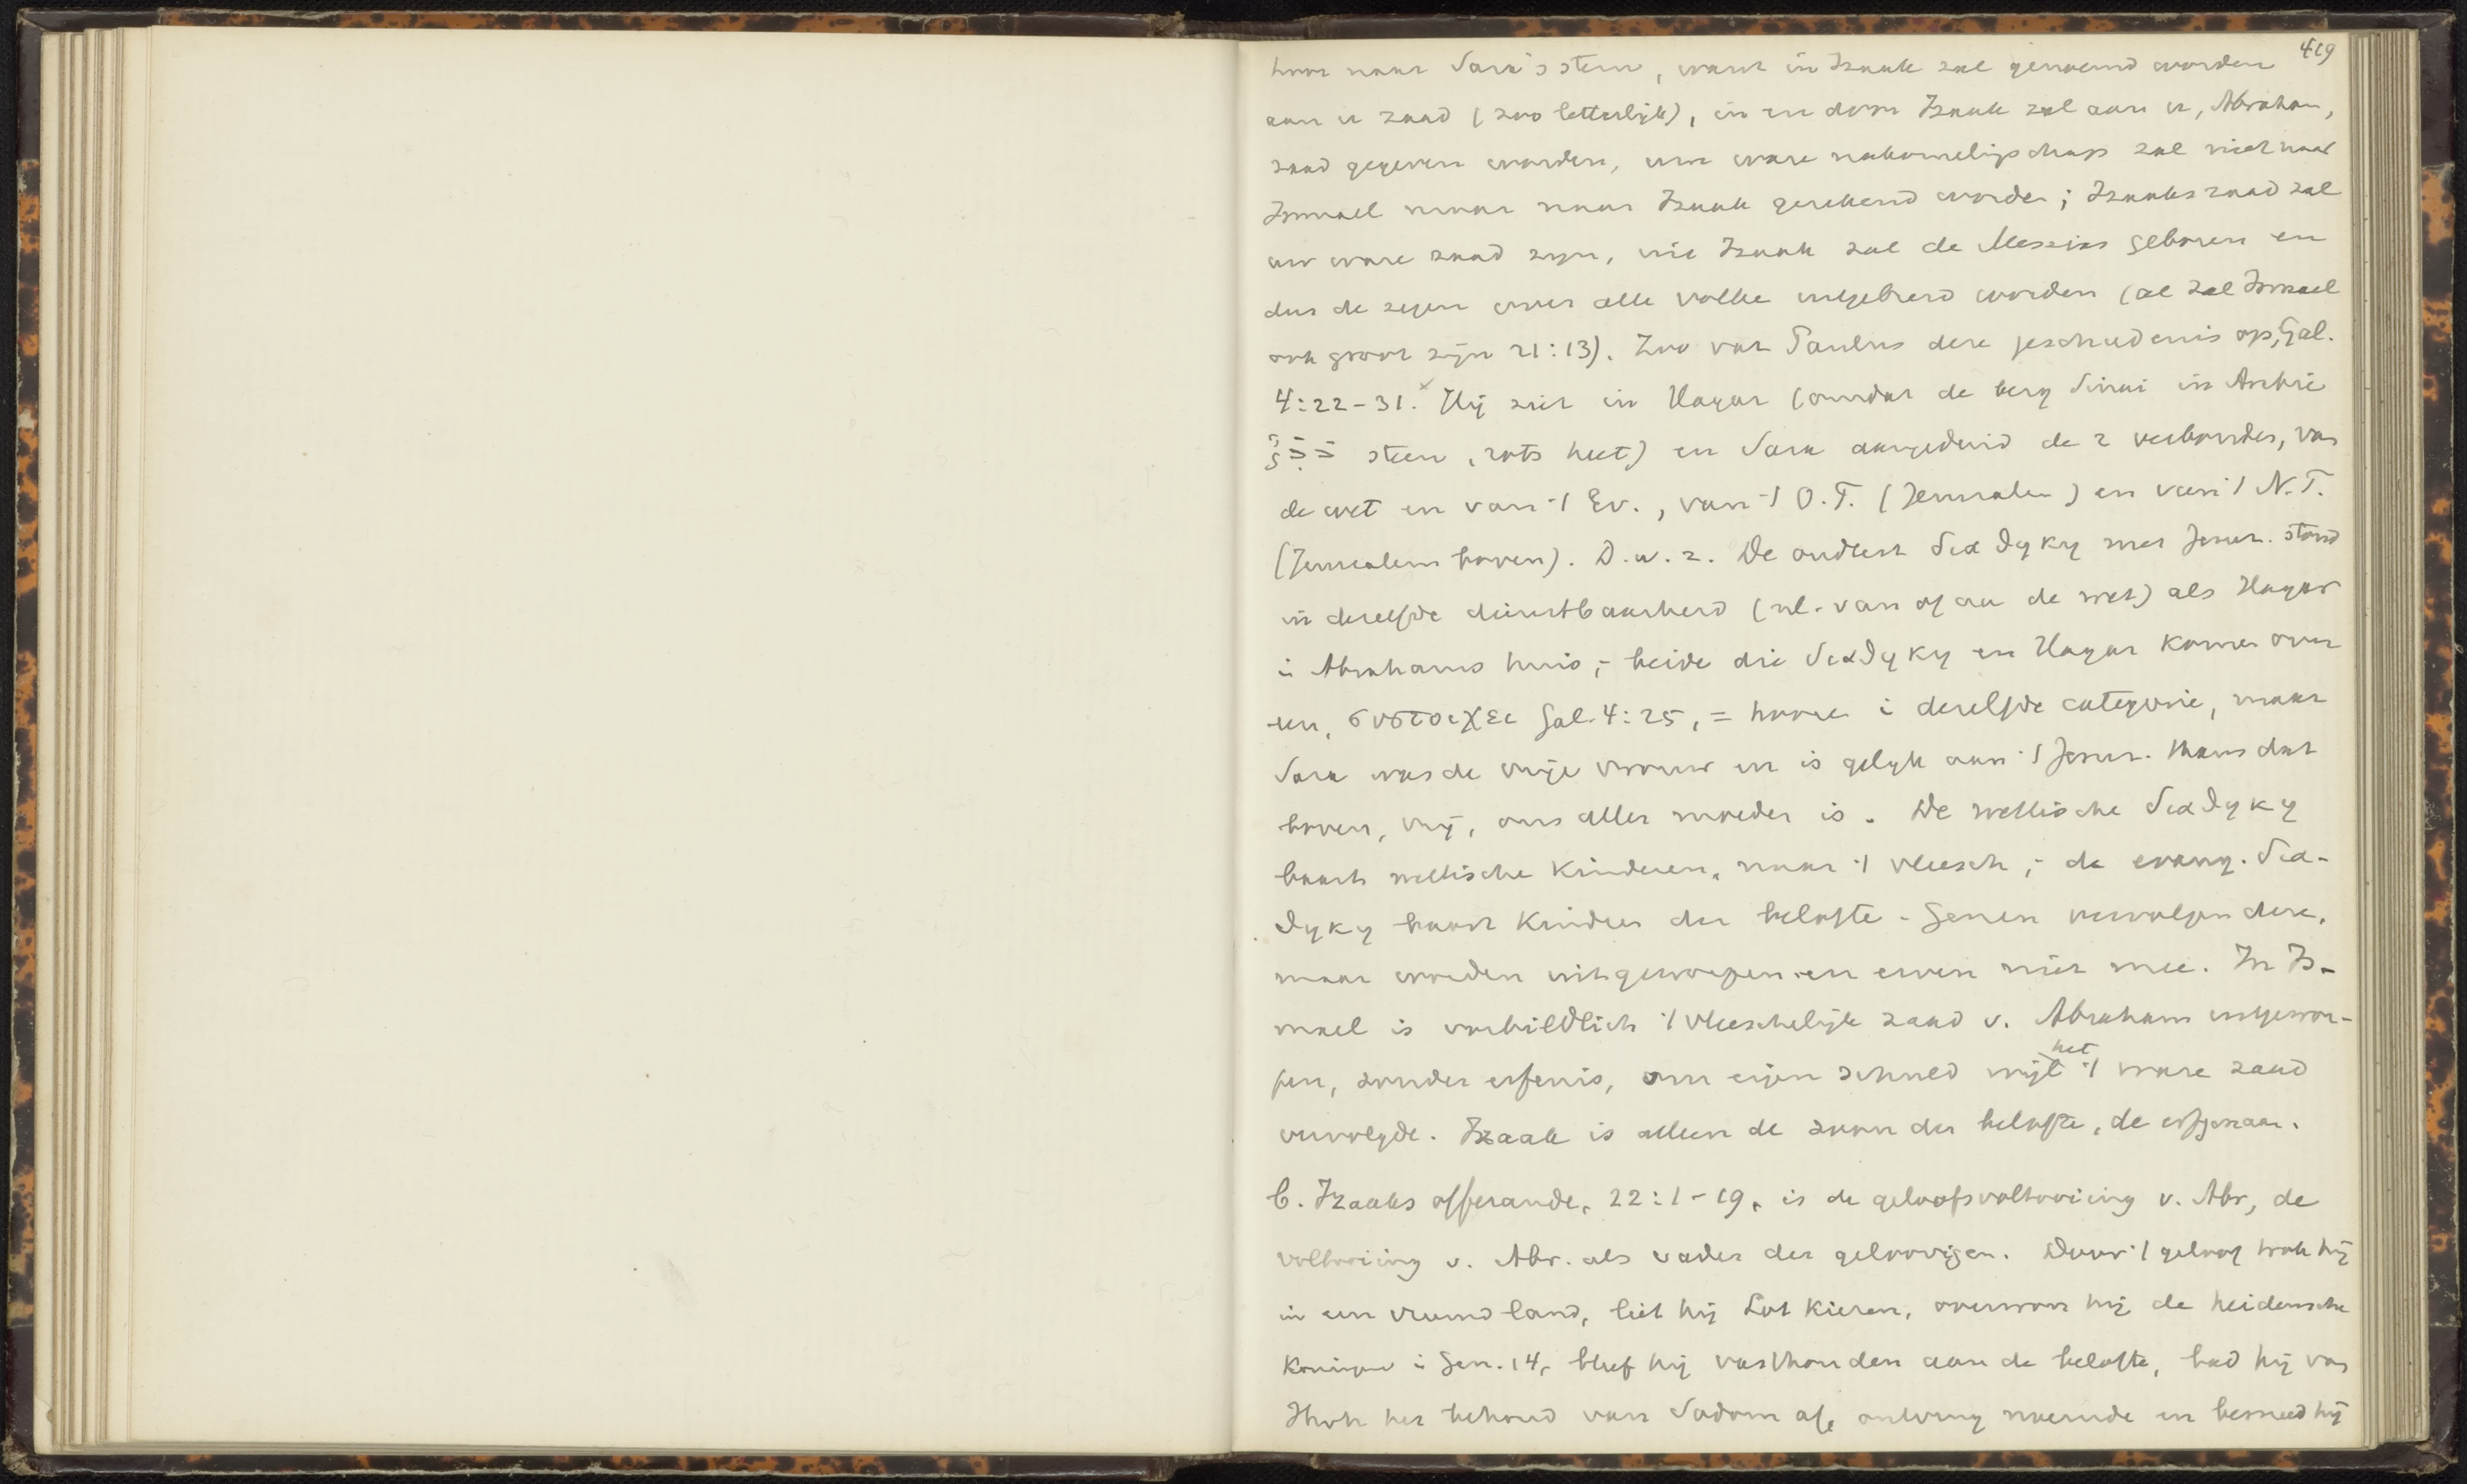 419
hoor naar Sara's stem, want in Izaak zal genoemd worden
aan u zaad (zoo letterlijk), in en door Izaak zal aan u, Abraham,
zaad gegeven worden, uw ware nakomelingschap zal niet naar
Ismael maar naar Izaak gerekend worden; Izaaks zaad zal
uw ware zaad zijn, uit Izaak zal de Messias geboren en
dus de zegen over alle volke uitgebreid worden (al zal Ismael
ook groot zijn 21:13). Zoo vat Paulus deze geschiedenis op, Gal.
4:22-31. Hij ziet in Hagar (omdat de berg Sinai in Arabie
steen, rots heet) en Sara aangeduid de 2 verbonden, van
de wet en van 't Ev., van 't O.T. (Jerusalem) en van 't N.T.
(Jerusalem boven). D.w.z. De oudtest διαθηκη met Jerus. stond
in dezelfde dienstbaarheid (nl. van of aan de wet) als Hagar
in Abrahams huis; beide die διαθηκη en Hagar komen over
een, συστοιχει Gal. 4:25, = hooren i dezelfde categorie, maar
Sara was de vrije vrouw en is gelijk aan 't Jerus. thans dat
boven, vrij, ons aller moeder is. De wettische διαθηκη
baart wettische kinderen, naar 't vleesch; de evang. δια-
θηκη baart kinderen der belofte. Genen vervolgen deze,
maar worden uitgeworpen en erven niet mee. In Is-
mael is voorbildlich 't vleeschelijk zaad v. Abraham uitgewor-
pen, zonder erfenis, om eigen schuld wijl het 't ware zaad
vervolgde. Izaak is alleen de zoon der belofte, de erfgenaam.
b. Izaaks offerande, 22:1-19, is de geloofsvoltooiing v. Abr, de
voltooiing v. Abr. als vader der geloovigen. Door 't geloof trok hij
in een vreemd land, liet hij Lot kiezen, overwon hij de heidensche
koningen i Gen. 14, bleef hij vasthouden aan de belofte, bad hij van
Jhvh het behoud van Sodom af, ontving noemde en besneed hij